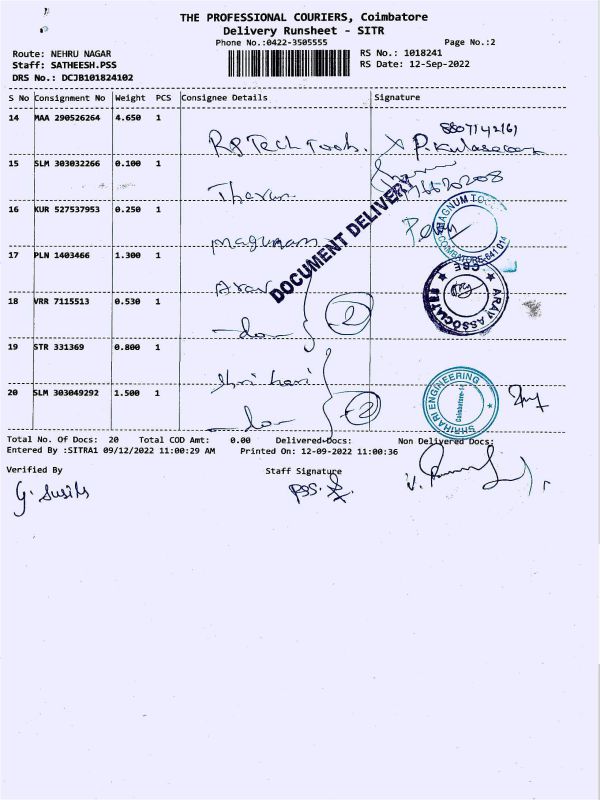 THE PROFESSIONAL COURIERS, Coimbatore
Delivery Runsheet - SITR
Phone No.:0422-3505555
Page No.:2
Route: NEHRU NAGAR
RS No.: 1018241
Staff: SATHEESH.PSS
RS Date: 12-Sep-2022
DRS No.: DCJB101824102
S No Consignment No Weight PCS Consignee Details Signature
14 MAA 290526264 4.650 1
8807142161
RP Tech Tools.
15 SLM 303032266 0.100 1
Tharun
16 KUR 527537953 0.250 1
magnum
MAGNUM
COIMBATORE-641 014
DOCUMENT DELIVERY
17 PLN 1403466 1.300 1
Arav
ARAV ASSOCIATES
CBE
18 VRR 7115513 0.530 1
-do-
2
19 STR 331369 0.800 1
Shri hari
SHRIHARI ENGINEERING
20 SLM 303049292 1.500 1
-do-
2
Total No. Of Docs: 20 Total COD Amt: 0.00 Delivered Docs: Non Delivered Docs:
Entered By :SITRA1 09/12/2022 11:00:29 AM Printed On: 12-09-2022 11:00:36
Verified By
Staff Signature
PSS.